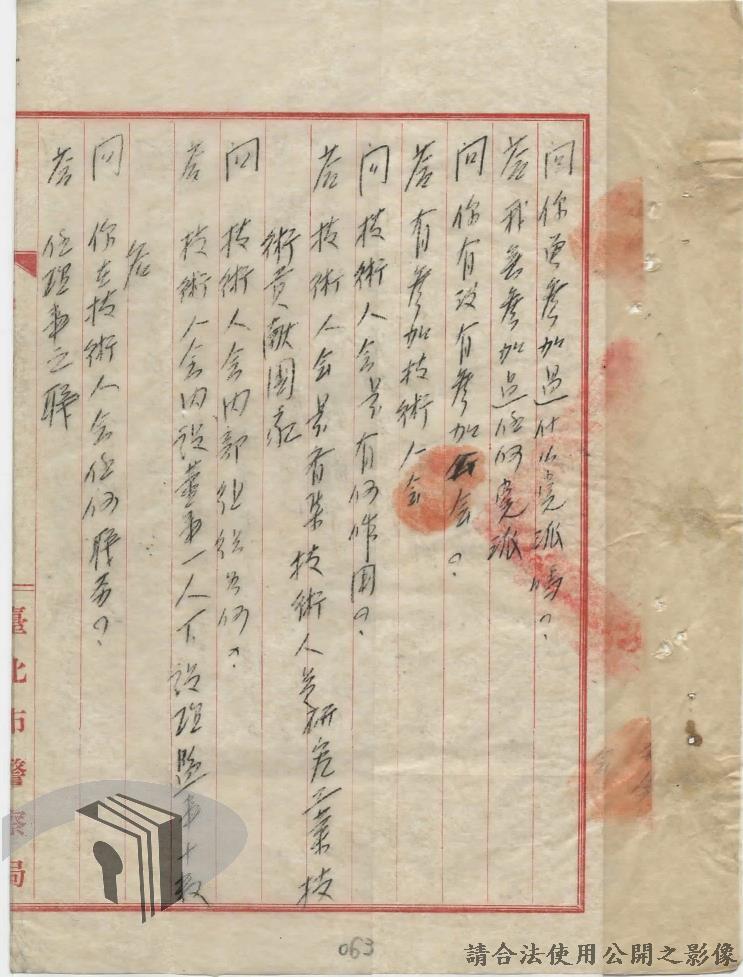 問 你曾參加過什么党派嗎?
答 我無參加過任何党派
問 你有没有參加公会?
答 有參加技術人会
問 技術人会是有何作用?
答 技術人会是召集技術人員研究工業技
術貢献国家
問 技術人会內部組織如何?
答 技術人会內設董事一人下設理監事十數
名
問 你在技術人会任何職務?
答 任理事之職
臺北市警察局
063
請合法使用公開之影像